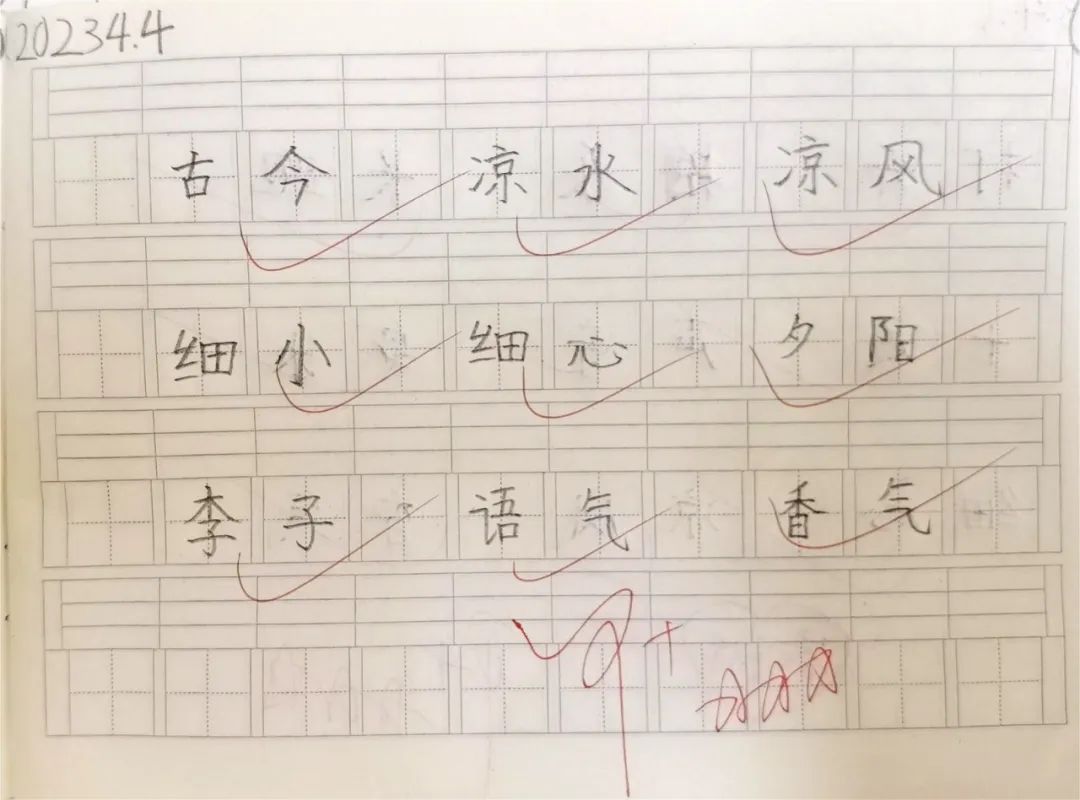 20234.4
古今 凉水 凉风
细小 细心 夕阳
李子 语气 香气